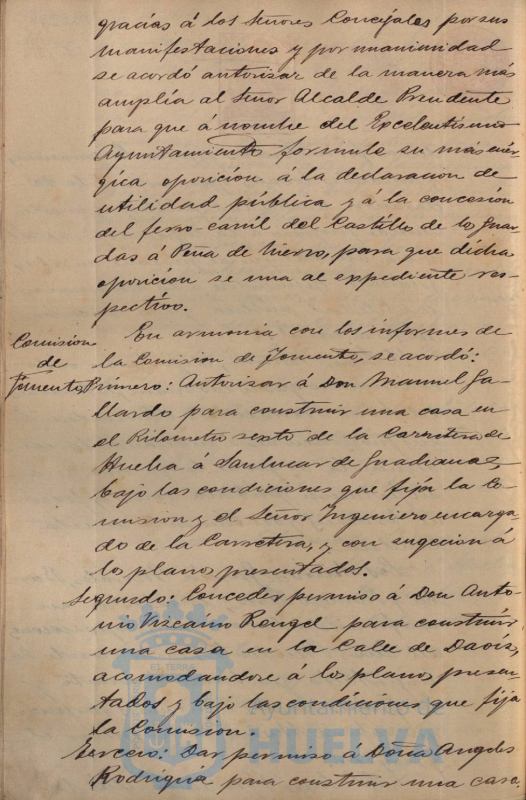 gracias á los Señores Concejales por sus
manifestaciones y por unanimidad
se acordó autorizar de la manera más
amplia al Señor Alcalde Presidente
para que á nombre del Excelentísimo
Ayuntamiento formule su más enér-
gica oposición á la declaracion de
utilidad pública y á la concesión
del ferro-carril del Castillo de las Guar-
das á Peña de Hierro, para que dicha
oposición se una al expediente res-
pectivo.
Comision de Fomento
En armonia con los informes de
la Comision de Fomento, se acordó:
Primero: Autorizar á Don Manuel Ga-
llardo para construir una casa en
el Kilometro sexto de la Carretera de
Huelva á Sanlucar de Guadiana,
bajo las condiciones que fija la Co-
mision y el Señor Ingeniero encarga-
do de la Carretera, y con sugecion a
los planos presentados.
Segundo: Conceder permiso á Don Anto-
nio Vizcaino Rengel para construir
una casa en la Calle de Daoiz,
acomodandose á los planos presen-
tados y bajo las condiciones que fija
la Comision.
Tercero: Dar permiso á Doña Angeles
para construir una casa
Ayuntamiento de
HUELVA